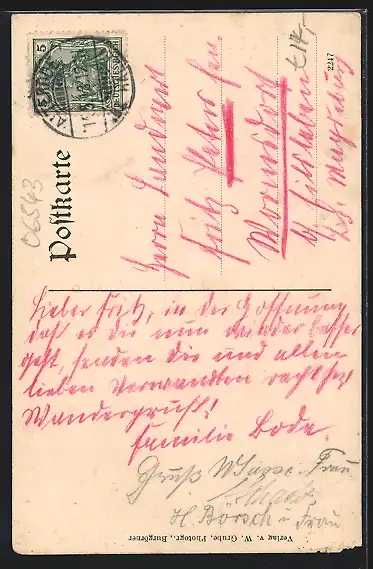 Postkarte
Herrn Landwirt
Fritz
Wormsdorf
b. Eilsleben
Bz. Magdeburg
2247
06543
5
DEUTSCHES REICH
Lieber Fritz, in der Hoffnung
daß es dir nun wieder besser
geht, senden dir und allen
lieben Verwandten recht
Wandergruß!
Familie Bode.
Gruß Frau
H. Börsch u Frau
Verlag v. W. Grube, Photogr., Burgörner